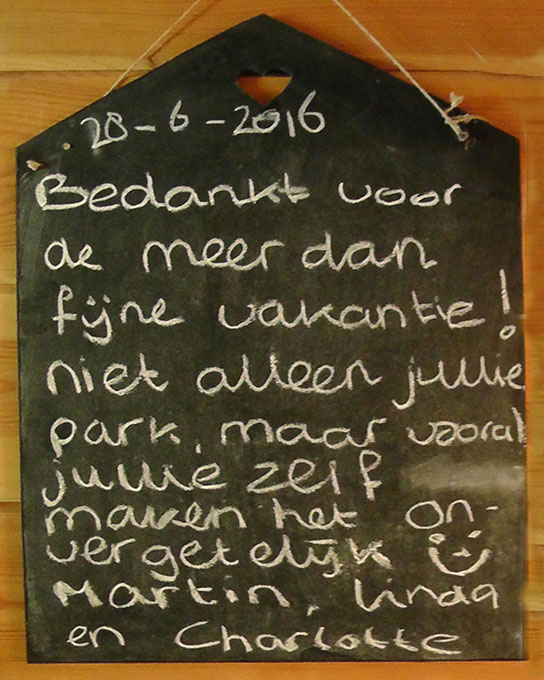 28-6-2016
Bedankt voor
de meer dan
fijne vakantie!
niet alleen jullie
park, maar vooral
jullie zelf
maken het on-
vergetelijk
Martin, linda
en Charlotte